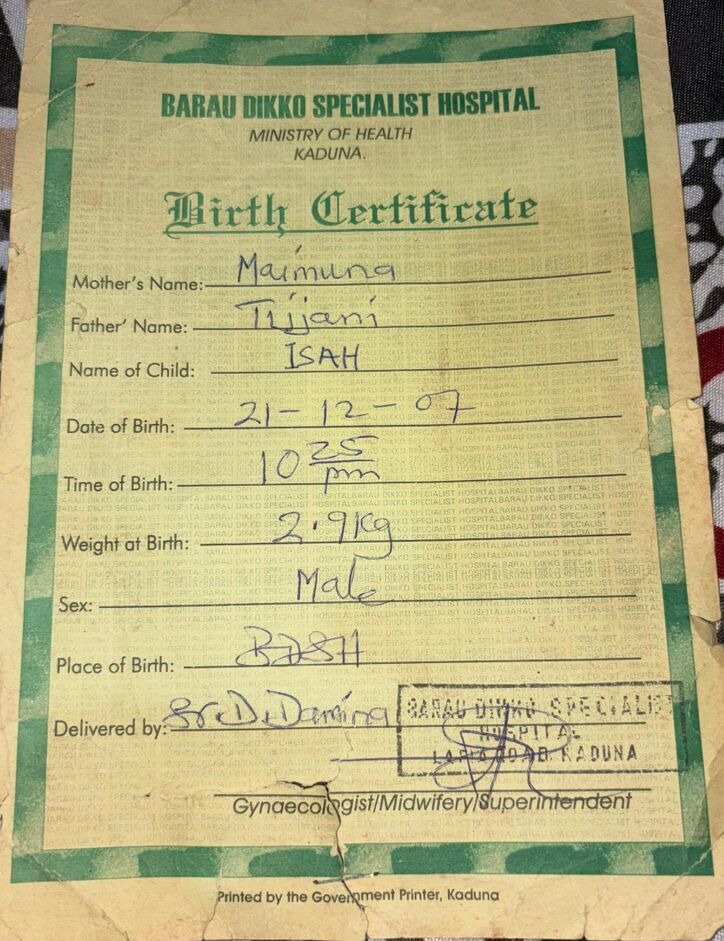 BARAU DIKKO SPECIALIST HOSPITAL
MINISTRY OF HEALTH
KADUNA.
Birth Certificate
Mother's Name: Maimuna
Father' Name: Tijjani
Name of Child: ISAH
Date of Birth: 21 - 12 - 07
Time of Birth: 10 25 pm
Weight at Birth: 2.9kg
Sex: Male
Place of Birth: BDSH
Delivered by: Sr. D. Damina
BARAU DIKKO SPECIALIST
HOSPITAL
ROAD KADUNA
Gynaecologist/Midwifery/Superintendent
Printed by the Government Printer, Kaduna